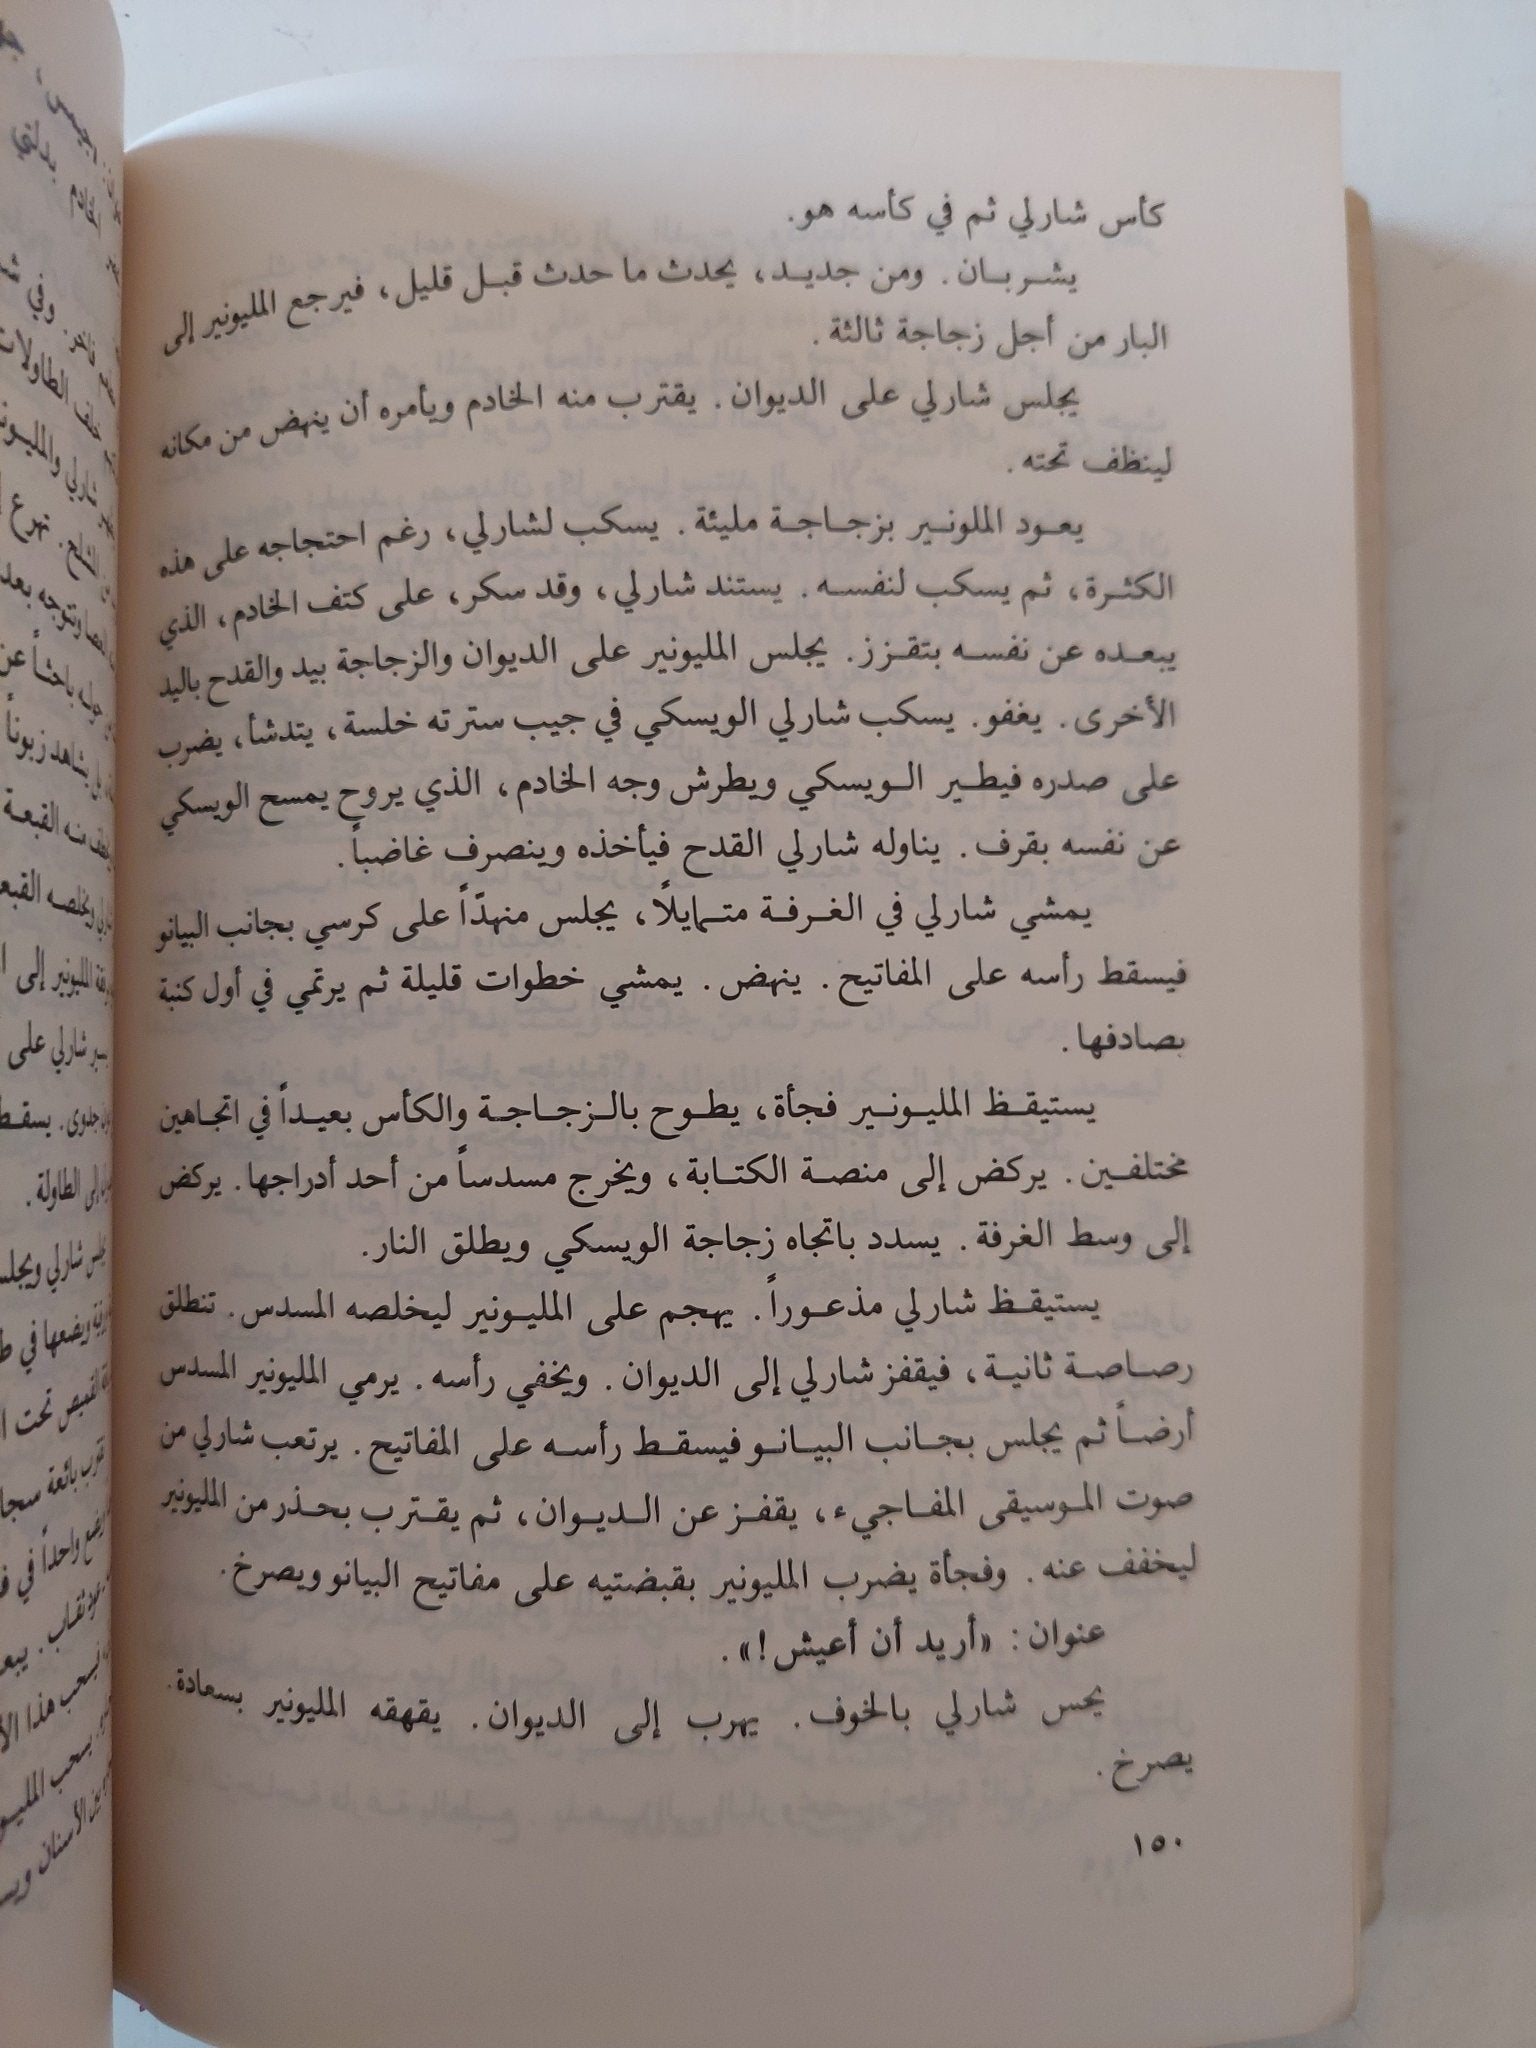 كأس شارلي ثم في كأسه هو.
يشربان. ومن جديد، يحدث ما حدث قبل قليل، فيرجع المليونير إلى
البار من أجل زجاجة ثالثة.
يجلس شارلي على الديوان. يقترب منه الخادم ويأمره أن ينهض من مكانه
لينظف تحته.
يعود الملونير بزجاجة مليئة. يسكب لشارلي، رغم احتجاجه على هذه
الكثرة، ثم يسكب لنفسه. يستند شارلي، وقد سكر، على كتف الخادم، الذي
يبعده عن نفسه بتقزز. يجلس المليونير على الديوان والزجاجة بيد والقدح باليد
الأخرى. يغفو. يسكب شارلي الويسكي في جيب سترته خلسة، يتدشأ، يضرب
على صدره فيطير الويسكي ويطرش وجه الخادم، الذي يروح يمسح الويسكي
عن نفسه بقرف. يناوله شارلي القدح فيأخذه وينصرف غاضباً.
يمشي شارلي في الغرفة متمايلاً، يجلس منهدّاً على كرسي بجانب البيانو
فيسقط رأسه على المفاتيح. ينهض. يمشي خطوات قليلة ثم يرتمي في أول كنبة
يصادفها.
يستيقظ المليونير فجأة، يطوح بالزجاجة والكأس بعيداً في اتجاهين
مختلفين. يركض إلى منصة الكتابة، ويخرج مسدساً من أحد أدراجها. يركض
إلى وسط الغرفة. يسدد باتجاه زجاجة الويسكي ويطلق النار.
يستيقظ شارلي مذعوراً. يهجم على المليونير ليخلصه المسدس. تنطلق
رصاصة ثانية، فيقفز شارلي إلى الديوان. ويخفي رأسه. يرمي المليونير المسدس
أرضاً ثم يجلس بجانب البيانو فيسقط رأسه على المفاتيح. يرتعب شارلي من
صوت الموسيقى المفاجيء، يقفز عن الديوان، ثم يقترب بحذر من المليونير
ليخفف عنه. وفجأة يضرب المليونير بقبضتيه على مفاتيح البيانو ويصرخ.
عنوان: «أريد أن أعيش!».
يحس شارلي بالخوف. يهرب إلى الديوان. يقهقه المليونير بسعادة.
يصرخ.
١٥٠